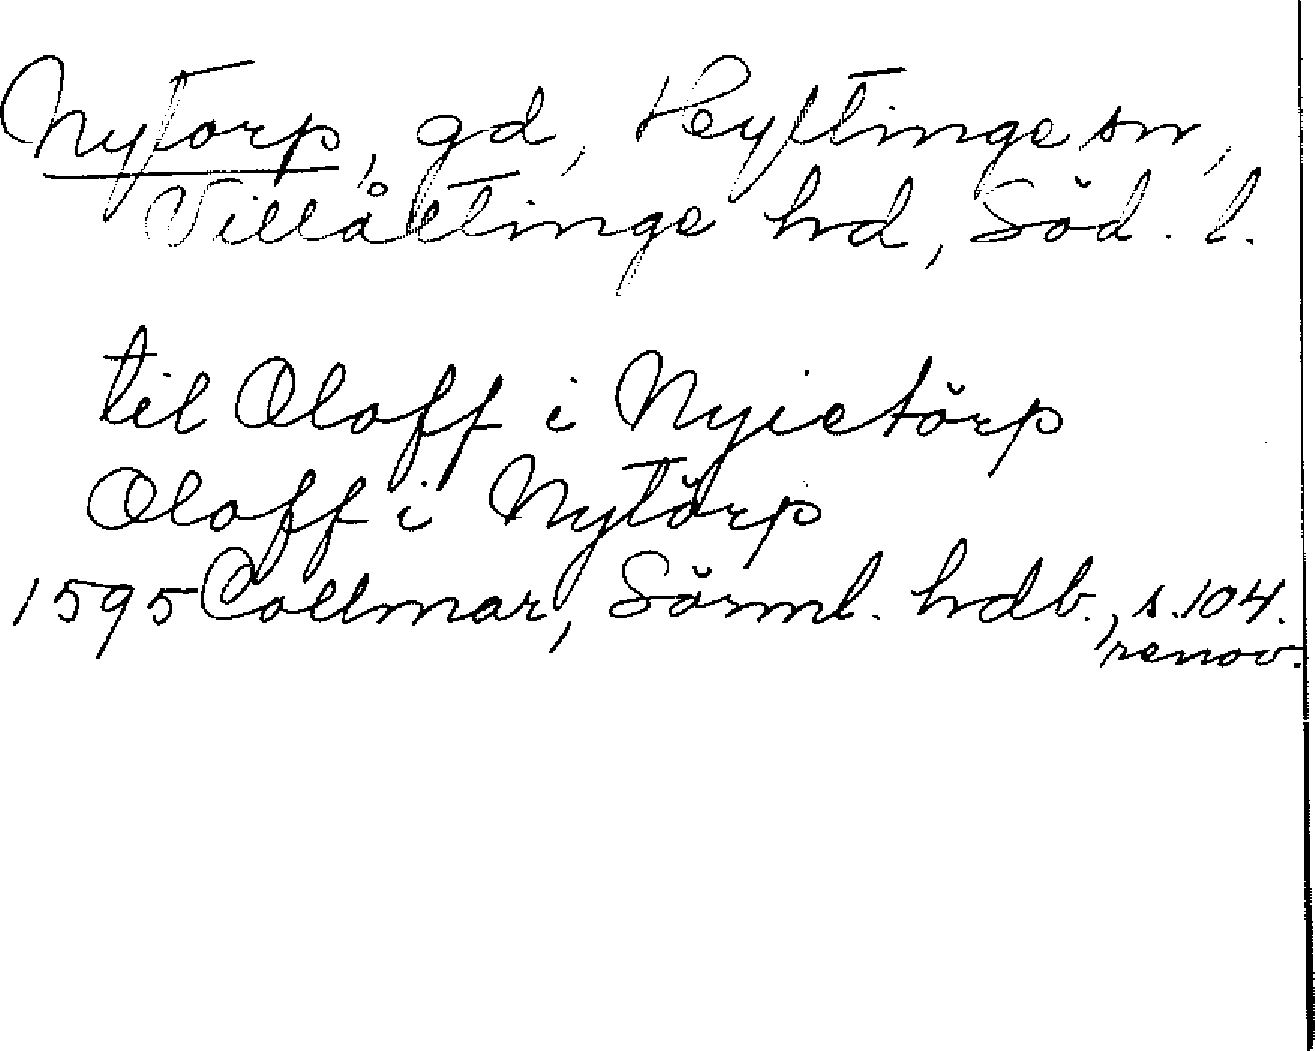 Nytorp, gd, Flyttinge sn,
Villåttinge hd, Söd. l.
til Oloff i Nyietörp
Oloff i Nytörp
1595 Collmar, Sörml. hdb., s. 104.
renov.